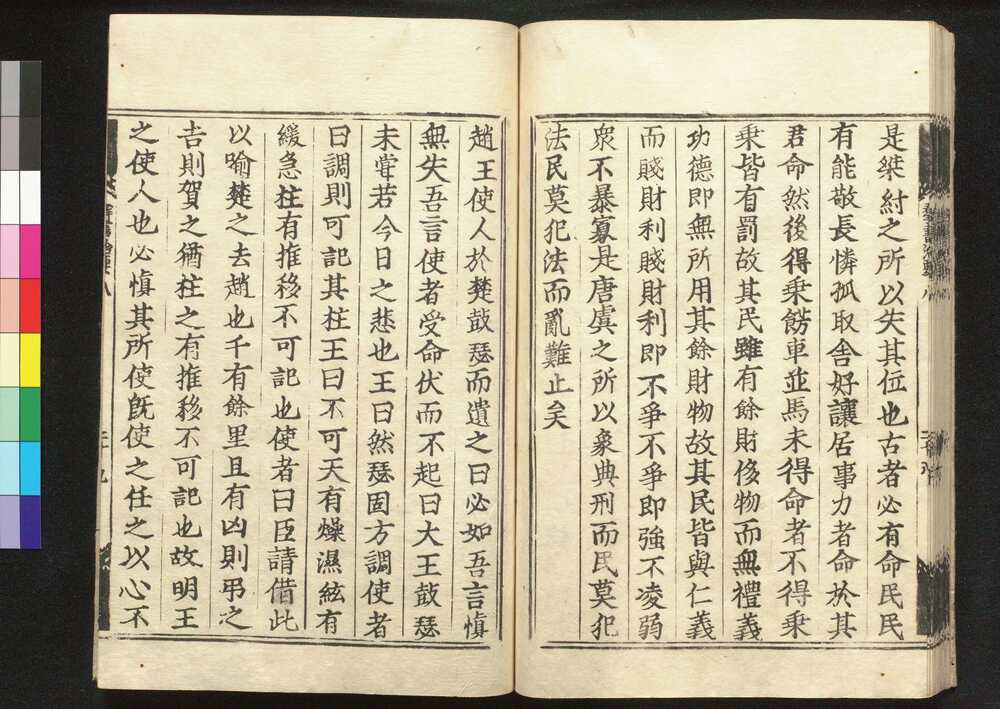 是桀紂之所以失其位也古者必有命民民
有能敬長憐孤取舍好讓居事力者命於其
君命然後得乗餝車並馬未得命者不得乗
乗皆有罰故其民雖有餘財侈物而無禮義
功德即無所用其餘財物故其民皆與仁義
而賤財利賤財利即不爭不爭即強不凌弱
衆不暴寡是唐虞之所以象典刑而民莫犯
法民莫犯法而亂難止矣
趙王使人於楚鼓瑟而遣之曰必如吾言慎
無失吾言使者受命伏而不起曰大王鼓瑟
未甞若今日之悲也王曰然瑟固方調使者
曰調則可記其柱王曰不可天有燥濕絃有
緩急柱有推移不可記也使者曰臣請借此
以喻楚之去趙也千有餘里且有凶則弔之
吉則賀之猶柱之有推移不可記也故明王
之使人也必慎其所使旣使之任之以心不